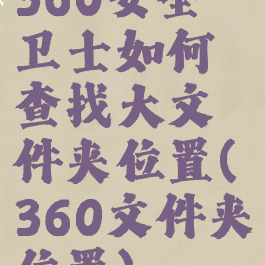 360安全
卫士如何
查找大文
件夹位置(
360文件夹
位置)